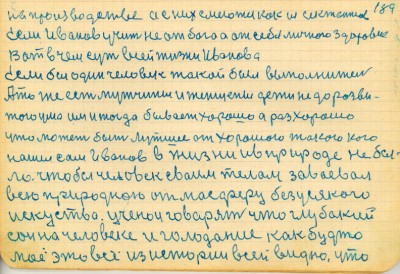 189
на производстве а с них смотки как и система
Если Иванов учит не от бога а от себя личного здоровие
Вот в чем суть всей жизни Иванова
Если бы один человек такой был выполнител
А то же есть мужчини и женщени дети недорозви-
того ума им иногда бывает хорошо а раз хорошо
что может быть лутше от хорошого такого кого
нашли сам Иванов в жизни и в природе не бы-
ло. чтобы человек своим телам завоевал
всю природную от.масферу без усякого
искуства. ученои говорят что глубакий
сон на человеке и голодание как будто
моё это всё из истории всей видно, что